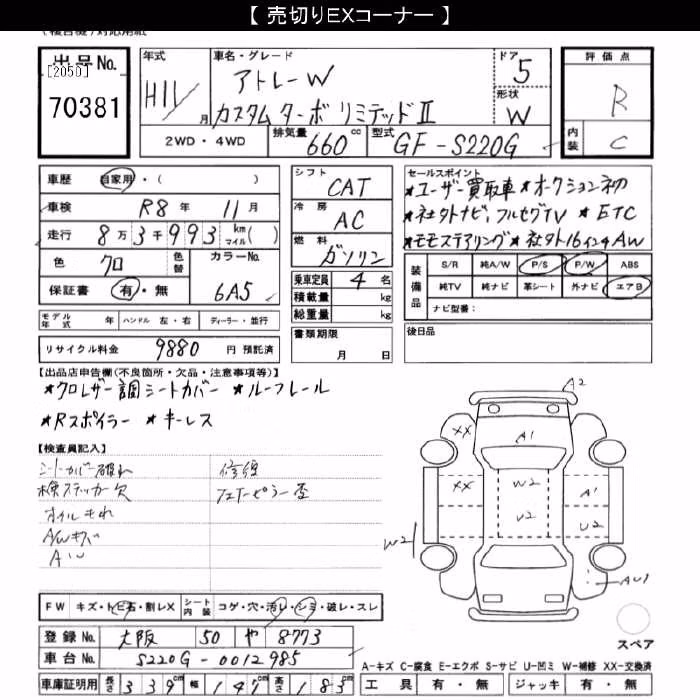 【 売切りEXコーナー 】
出品No. [2050] 70381
年式 H11/ 月
車名・グレード アトレーW カスタムターボリミテッドⅡ
ドア 5
形状 W
評価点 R
内装 C
2WD・4WD 排気量 660 cc 型式 GF-S220G
車歴 自家用・( )
車検 R8年 11月
走行 8万3千993 km マイル( )
色 クロ 色替 カラーNo. 6A5
保証書 有・無
シフト CAT
冷房 AC
燃料 ガソリン
乗車定員 4名
積載量 kg
総重量 kg
書類期限 月 日
セールスポイント
★ユーザー買取車 ★オークション初
★社外ナビ、フルセグTV ★ETC
★モモステアリング ★社外16インチAW
装備品 S/R 純A/W P/S P/W ABS
純TV 純ナビ 革シート 外ナビ エアB
ナビ型番:
後日品
モデル年式 年 ハンドル 左・右 ディーラー・並行
リサイクル料金 9880 円 預託済
【出品店申告欄(不良箇所・欠品・注意事項等)】
★クロレザー調シートカバー ★ルーフレール
★Rスポイラー ★キーレス
【検査員記入】
シートカバー破れ 修復
検ステッカー欠
オイルもれ
A/Wキズ
FW キズ・トビ石・割レX シート内装 コゲ・穴・汚レ・シミ・破レ・スレ
登録No. 大阪 50 や 8773
車台No. S220G-0012985
車庫証明用 長さ 339cm 幅 147cm 高さ 183cm
A2
XX
A1
XX
W2
A1
U2
U2
W2
スペア
A-キズ C-腐食 E-エクボ S-サビ U-凹ミ W-補修 XX-交換済
工具 有・無 ジャッキ 有・無